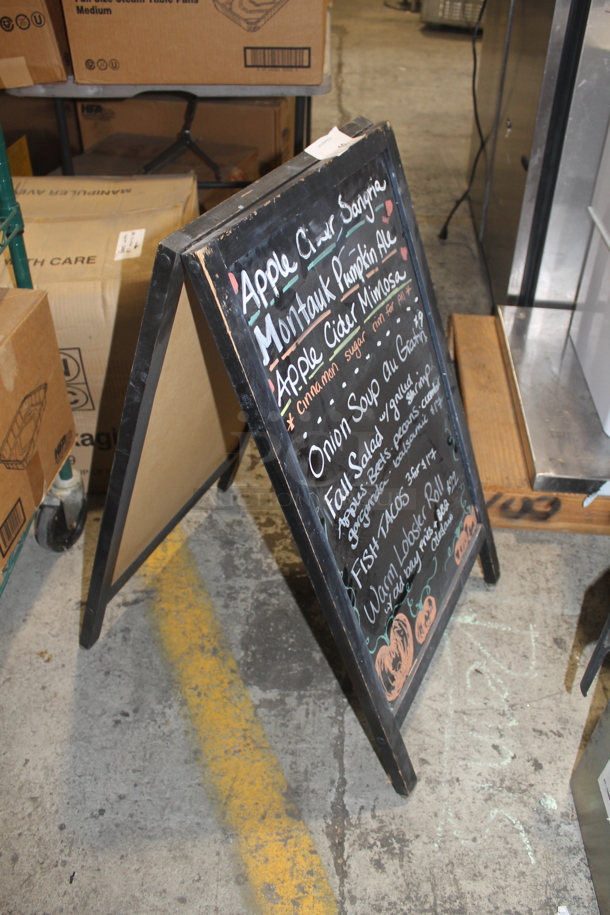 Full Size Steam Table Pans
Medium
MANIPULER AVEC
WITH CARE
Apple Cider Sangria
Montauk Pumpkin Ale
Apple Cider Mimosa
* cinnamon sugar rim for all *
Onion Soup au Gratin
Fall Salad w/ grilled shrimp
Apples. Beets. pecans.
gorgonzola. balsamic $17
FISH TACOS 3 for $17
Warm Lobster Roll
w/ old bay fries +